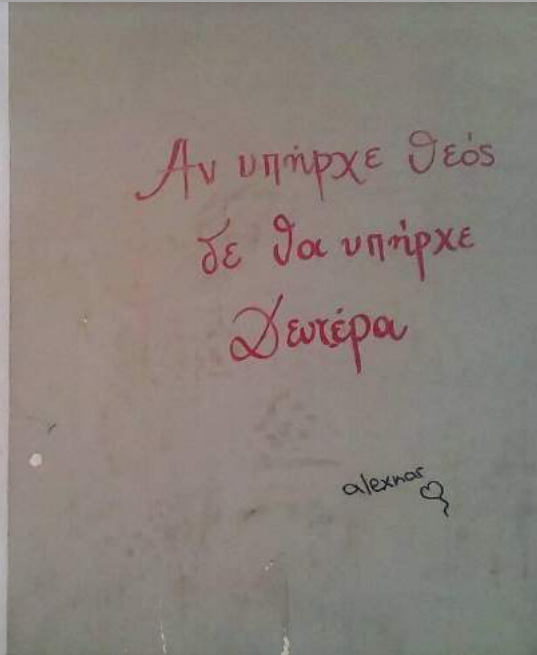 Αν υπήρχε θεός
δε θα υπήρχε
Δευτέρα
alexnar